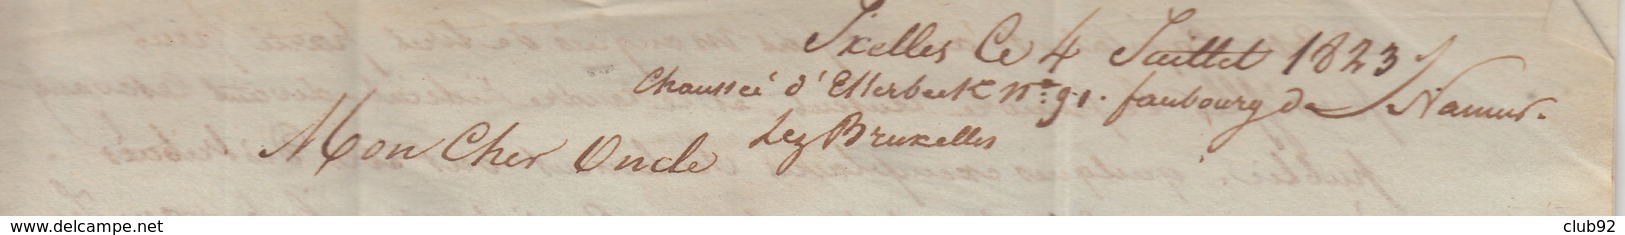 Ixelles Ce 4 Juillet 1823
Chaussée d'Etterbeek N° 91. faubourg de Namur.
Lez Bruxelles
Mon Cher Oncle
www.delcampe.net
club92